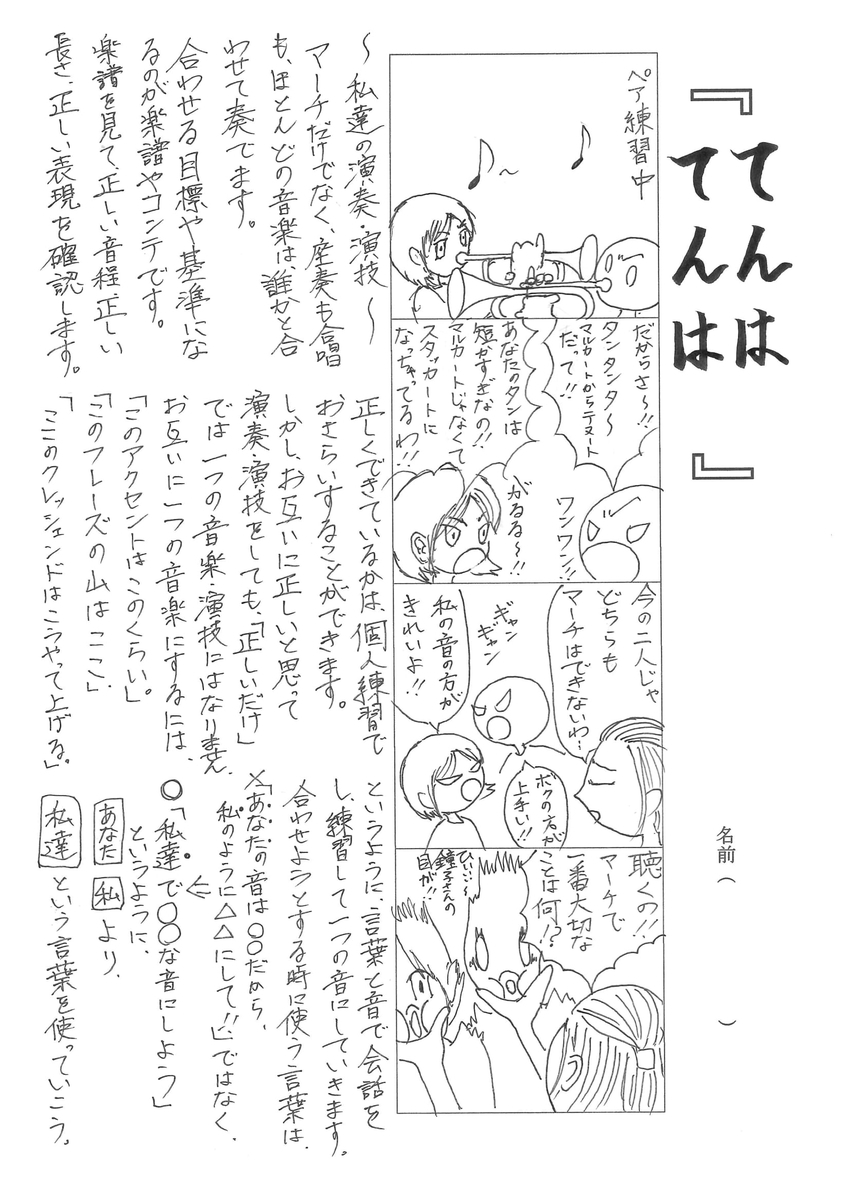 『てんは
てんは』
名前（　　　）
ペア練習中
だからさ～!!
タンタンタ～
マルカートからテヌート
だって!!
あなたのタンは
短かすぎなの!!
マルカートじゃなくて
スタッカートに
なっちゃってるわ!!
ワンワン!!
がるる～!!
今の二人じゃ
どちらも
マーチはできないわ…
ギャン
ギャン
ボクの方が
上手い!!
私の音の方が
きれいよ!!
聴くの!!
マーチで
一番大切な
ことは何!?
ひいい～
鐘子さんの
目が!!
～私達の演奏・演技～
マーチだけでなく、座奏も合唱
も、ほとんどの音楽は誰かと合
わせて奏でます。
合わせる目標や基準にな
るのが楽譜やコンテです。
楽譜を見て、正しい音程、正しい
長さ、正しい表現を確認します。
正しくできているかは、個人練習で
おさらいすることができます。
しかし、お互いに正しいと思って
演奏・演技をしても、「正しいだけ」
では一つの音楽・演技にはなりません。
お互いに一つの音楽にするには、
「このアクセントはこのくらい。」
「このフレーズの山はここ」
「ここのクレッシェンドはこうやって上げる。」
というように、言葉と音で会話を
し、練習して一つの音にしていきます。
合わせようとする時に使う言葉は、
×「あなたの音は○○だから、
私のように△△にして!!」ではなく、
○「私達で○○な音にしよう」
というように、
あなた 私 より、
私達 という言葉を使っていこう。